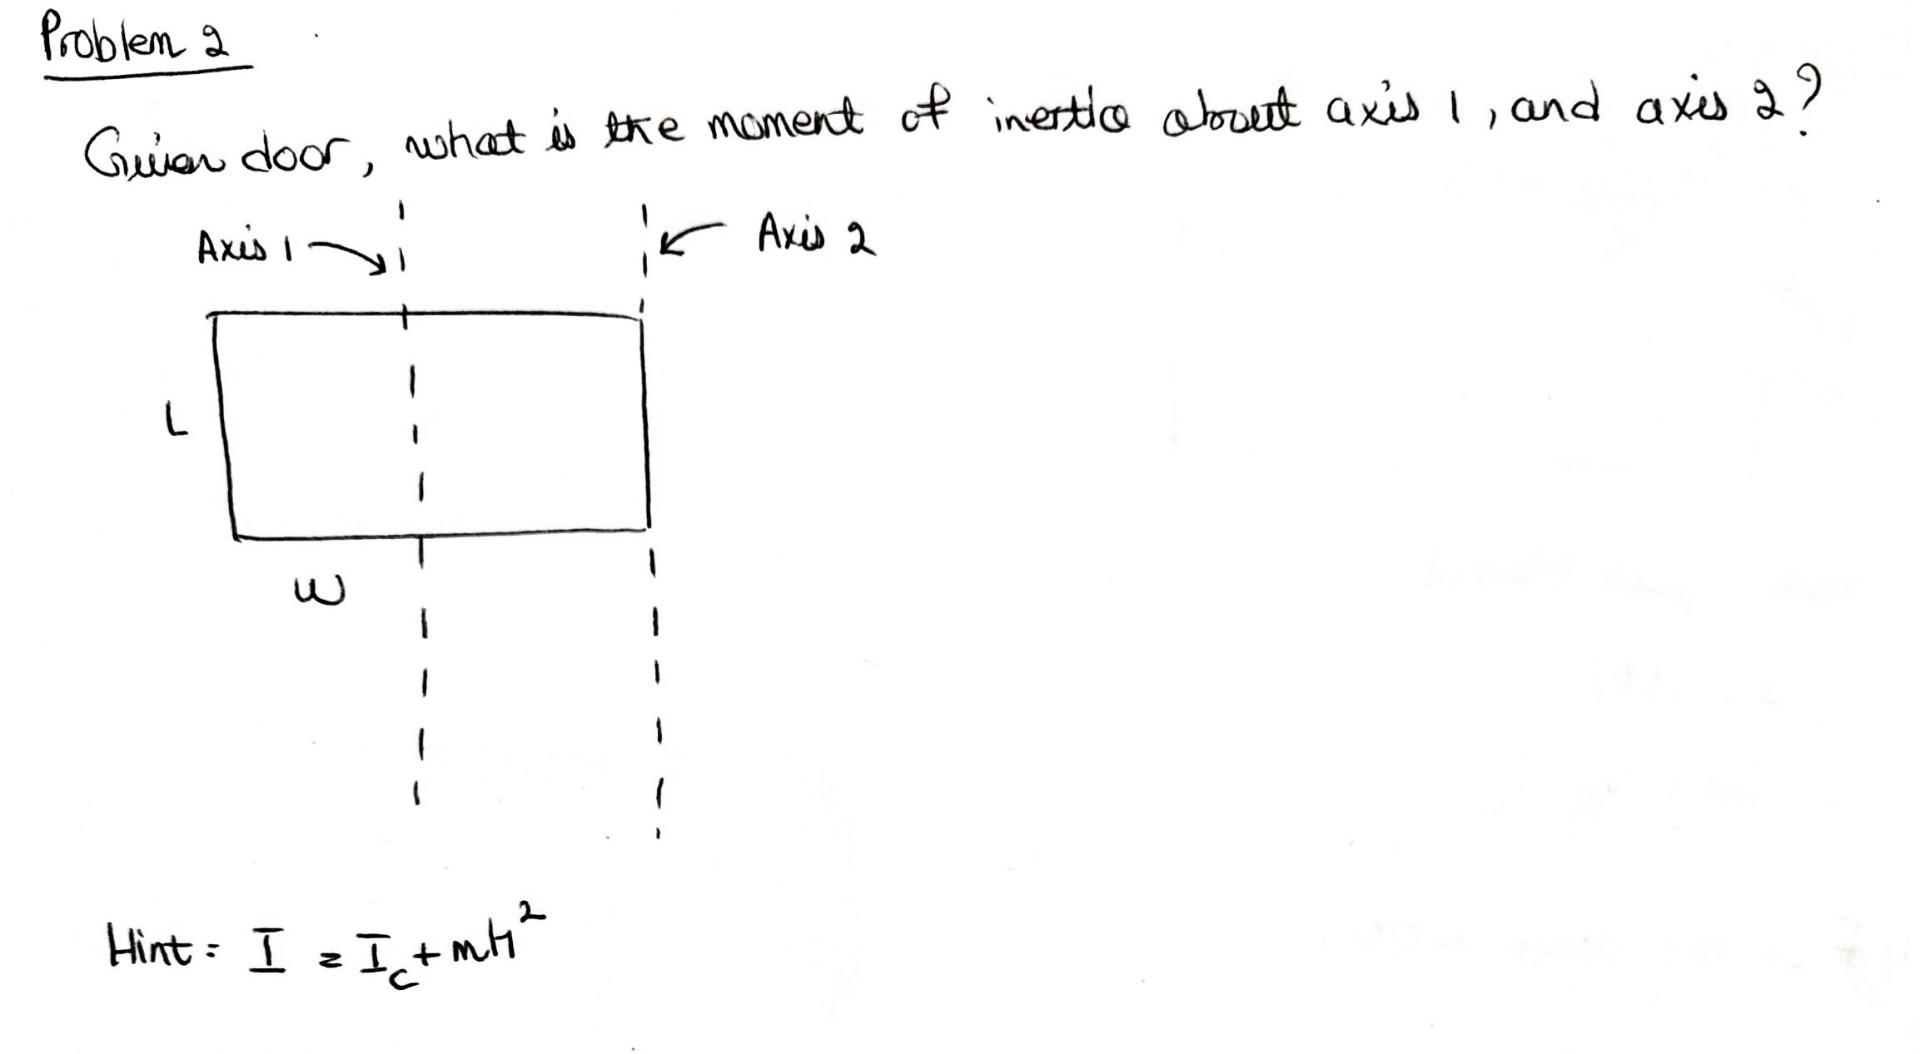 Problem 2
Given door, what is the moment of inertia about axis 1, and axis 2?
Axis 1
Axis 2
L
W
Hint: I = I_c + mh²